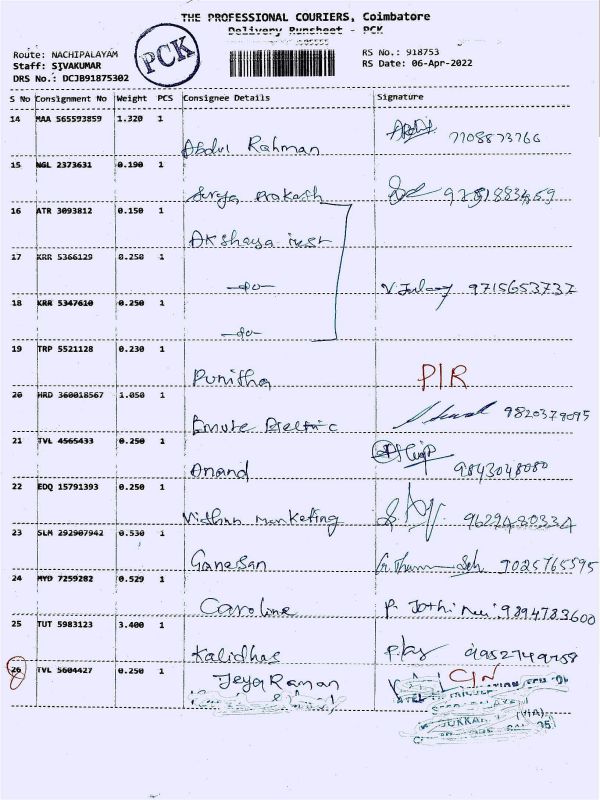 THE PROFESSIONAL COURIERS, Coimbatore
Delivery Runsheet - PCK
Route: NACHIPALAYAM
Staff: SIVAKUMAR
DRS No.: DCJB91875302
PCK
RS No.: 918753
RS Date: 06-Apr-2022
S No Consignment No Weight PCS Consignee Details Signature
14 MAA 565593859 1.320 1
Abdul Rahman 7708873766
15 NGL 2373631 0.190 1
Surya Prakash
16 ATR 3093812 0.150 1
Akshaya
17 KRR 5366129 0.250 1
-do- 9715653737
18 KRR 5347610 0.250 1
-do-
19 TRP 5521128 0.230 1
Punitha P/R
20 HRD 360018567 1.050 1
9820378095
21 TVL 4565433 0.250 1
Anand 9843048080
22 EDQ 15791393 0.250 1
Marketing 9629480334
23 SLM 292907942 0.530 1
Ganesan 9025765595
24 MYD 7259282 0.529 1
Caroline P. Jothi 9894783600
25 TUT 5983123 3.400 1
Kalidhas
26 TVL 5604427 0.250 1
Jeya Raman C/N
(VIA)